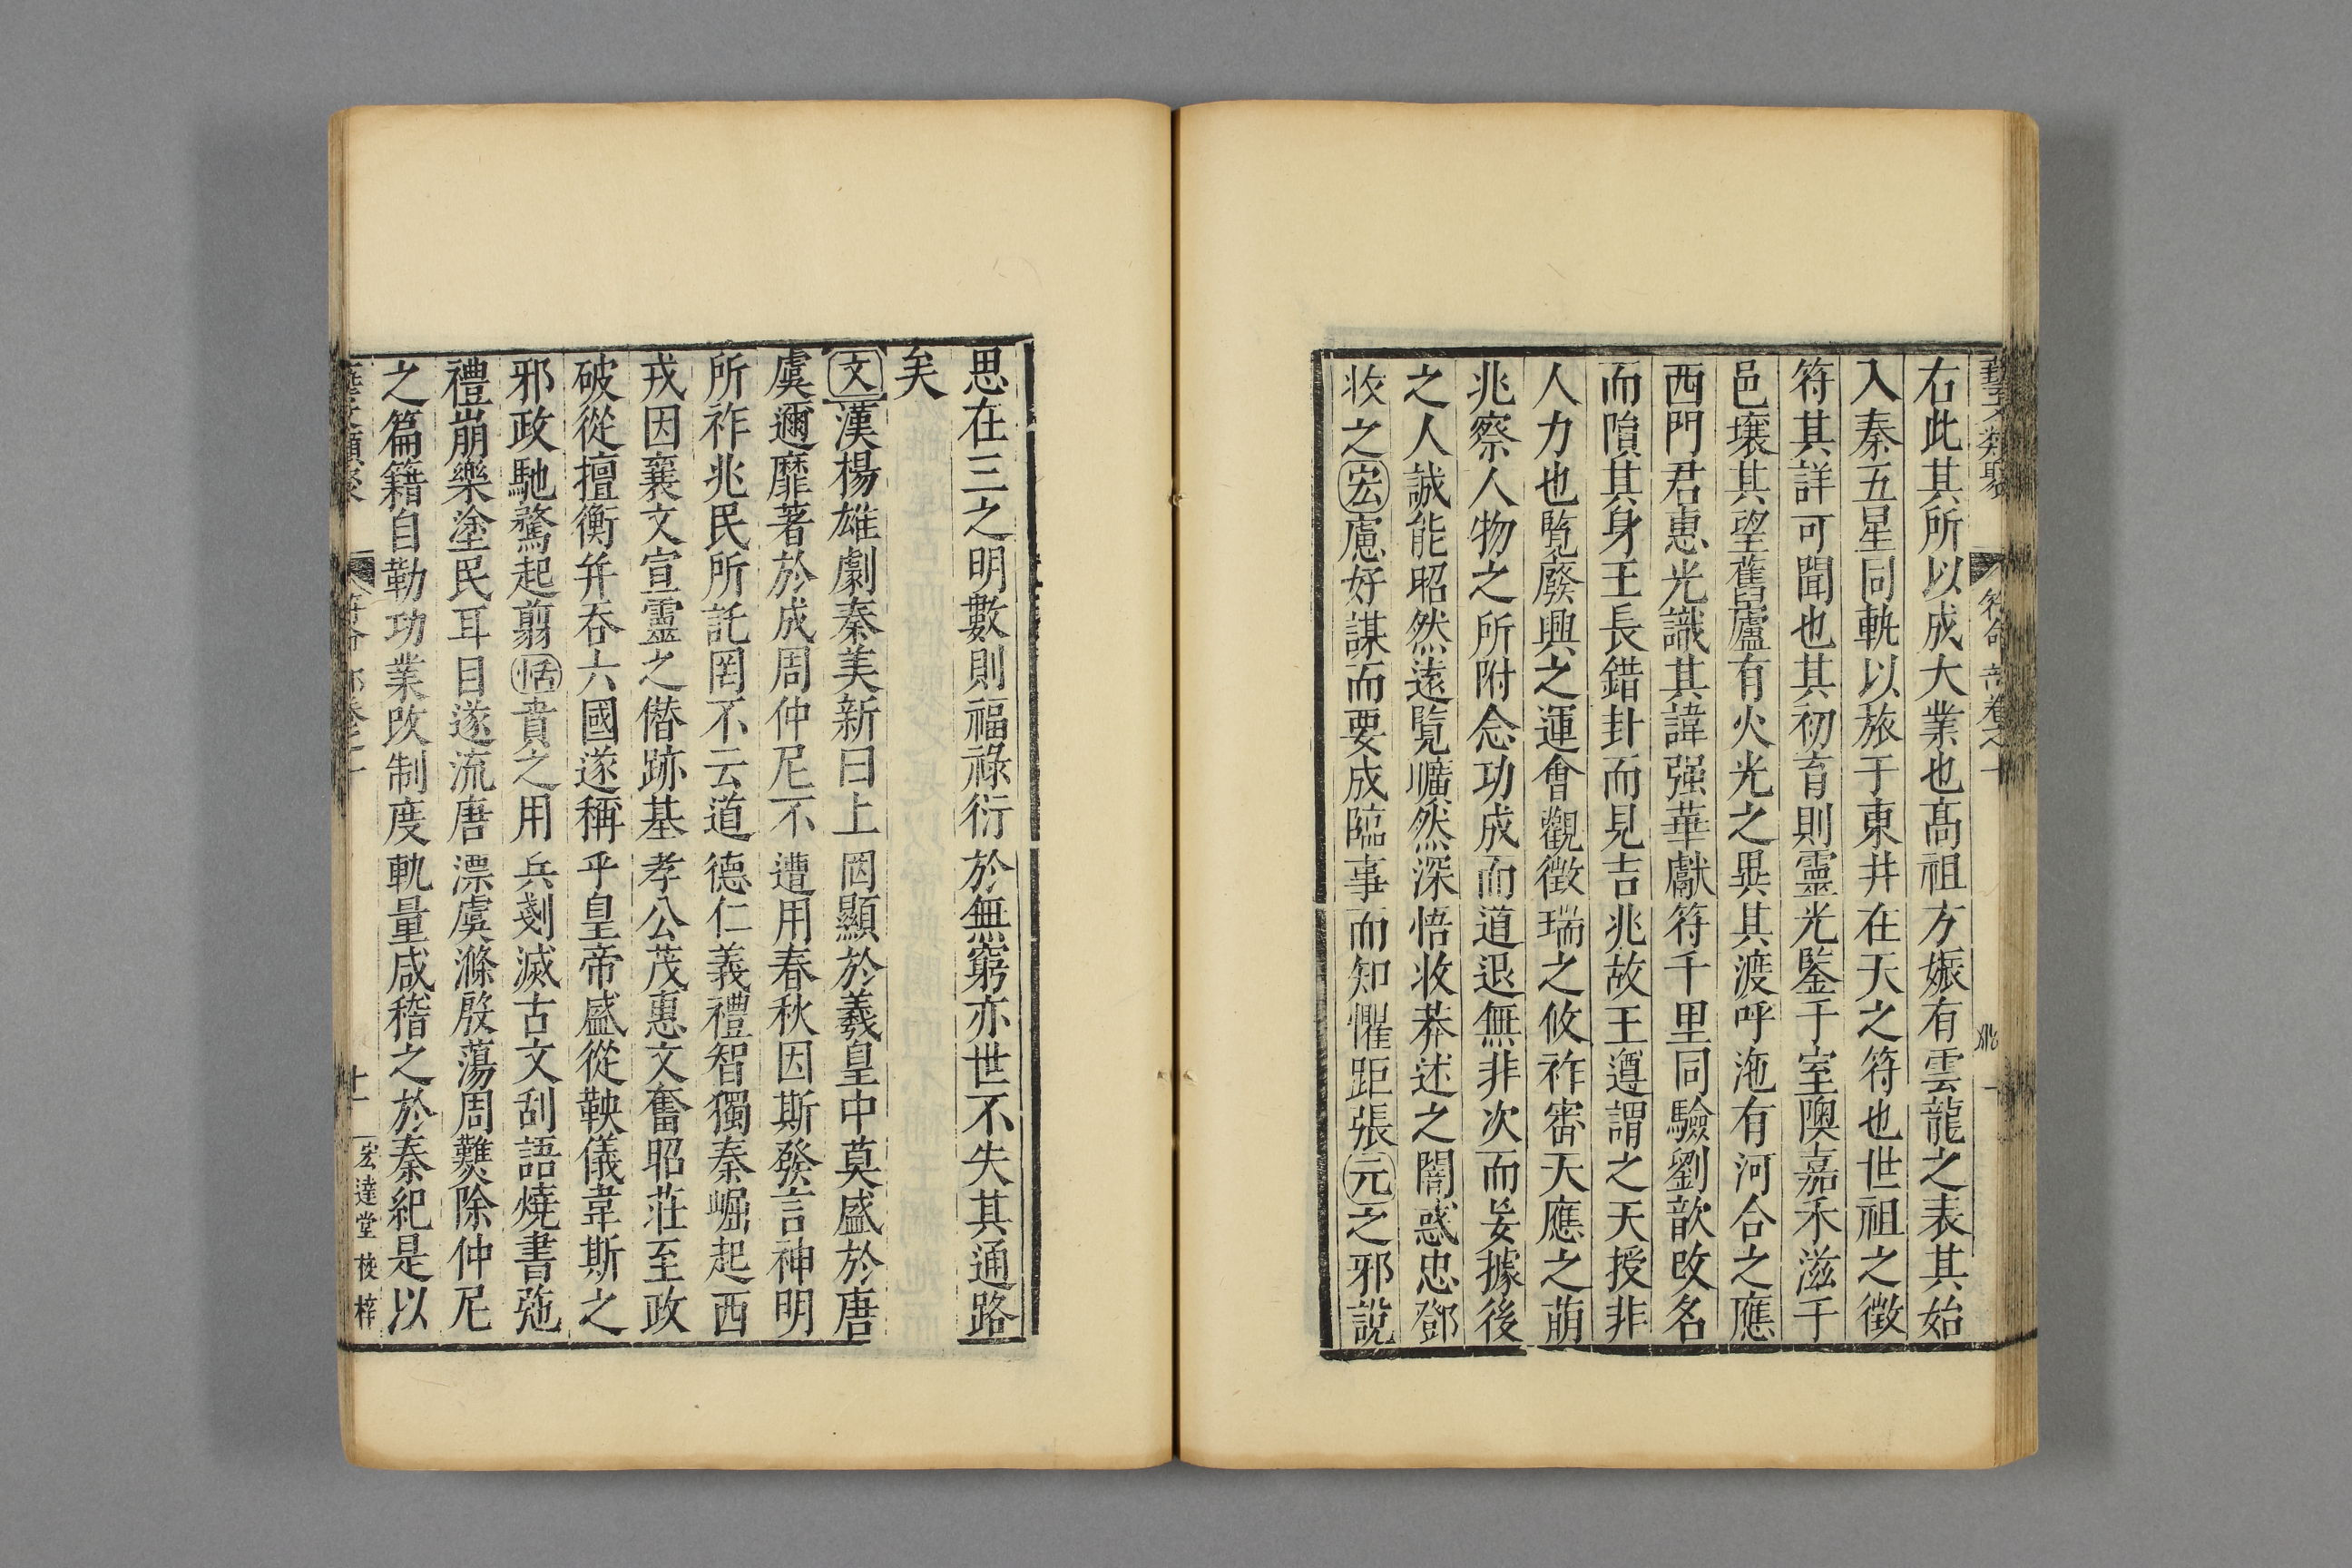 右此其所以成大業也高祖方娠有雲龍之表其始
入秦五星同軌以旅于東井在天之符也世祖之徵
符其詳可聞也其初育則靈光鑒于室隩嘉禾滋于
邑壤其望舊廬有火光之異其渡呼沲有河合之應
西門君惠光識其諱强華獻符千里同驗劉歆改名
而隕其身王長錯卦而見吉兆故王遵謂之天授非
人力也覧廢興之運會觀徵瑞之攸祚審天應之萠
兆察人物之所附念功成而道退無非次而妄據後
之人誠能昭然遠覧曠然深悟收莽述之闇惑忠鄧
收之宏慮好謀而要成臨事而知懼距張元之邪說
思在三之明數則福祿衍於無窮亦世不失其通路
矣
文漢楊雄劇秦美新曰上罔顯於羲皇中莫盛於唐
虞邇靡著於成周仲尼不遭用春秋因斯發言神明
所祚兆民所託罔不云道德仁義禮智獨秦崛起西
戎因襄文宣靈之僣跡基孝公茂惠文奮昭莊至政
破從擅衡并吞六國遂稱乎皇帝盛從鞅儀韋斯之
邪政馳騖起翦恬賁之用兵剗滅古文刮語燒書弛
禮崩樂塗民耳目遂流唐漂虞滌殷蕩周㸐除仲尼
之篇籍自勒功業改制度軌量咸稽之於秦紀是以
十一
宏達堂校梓